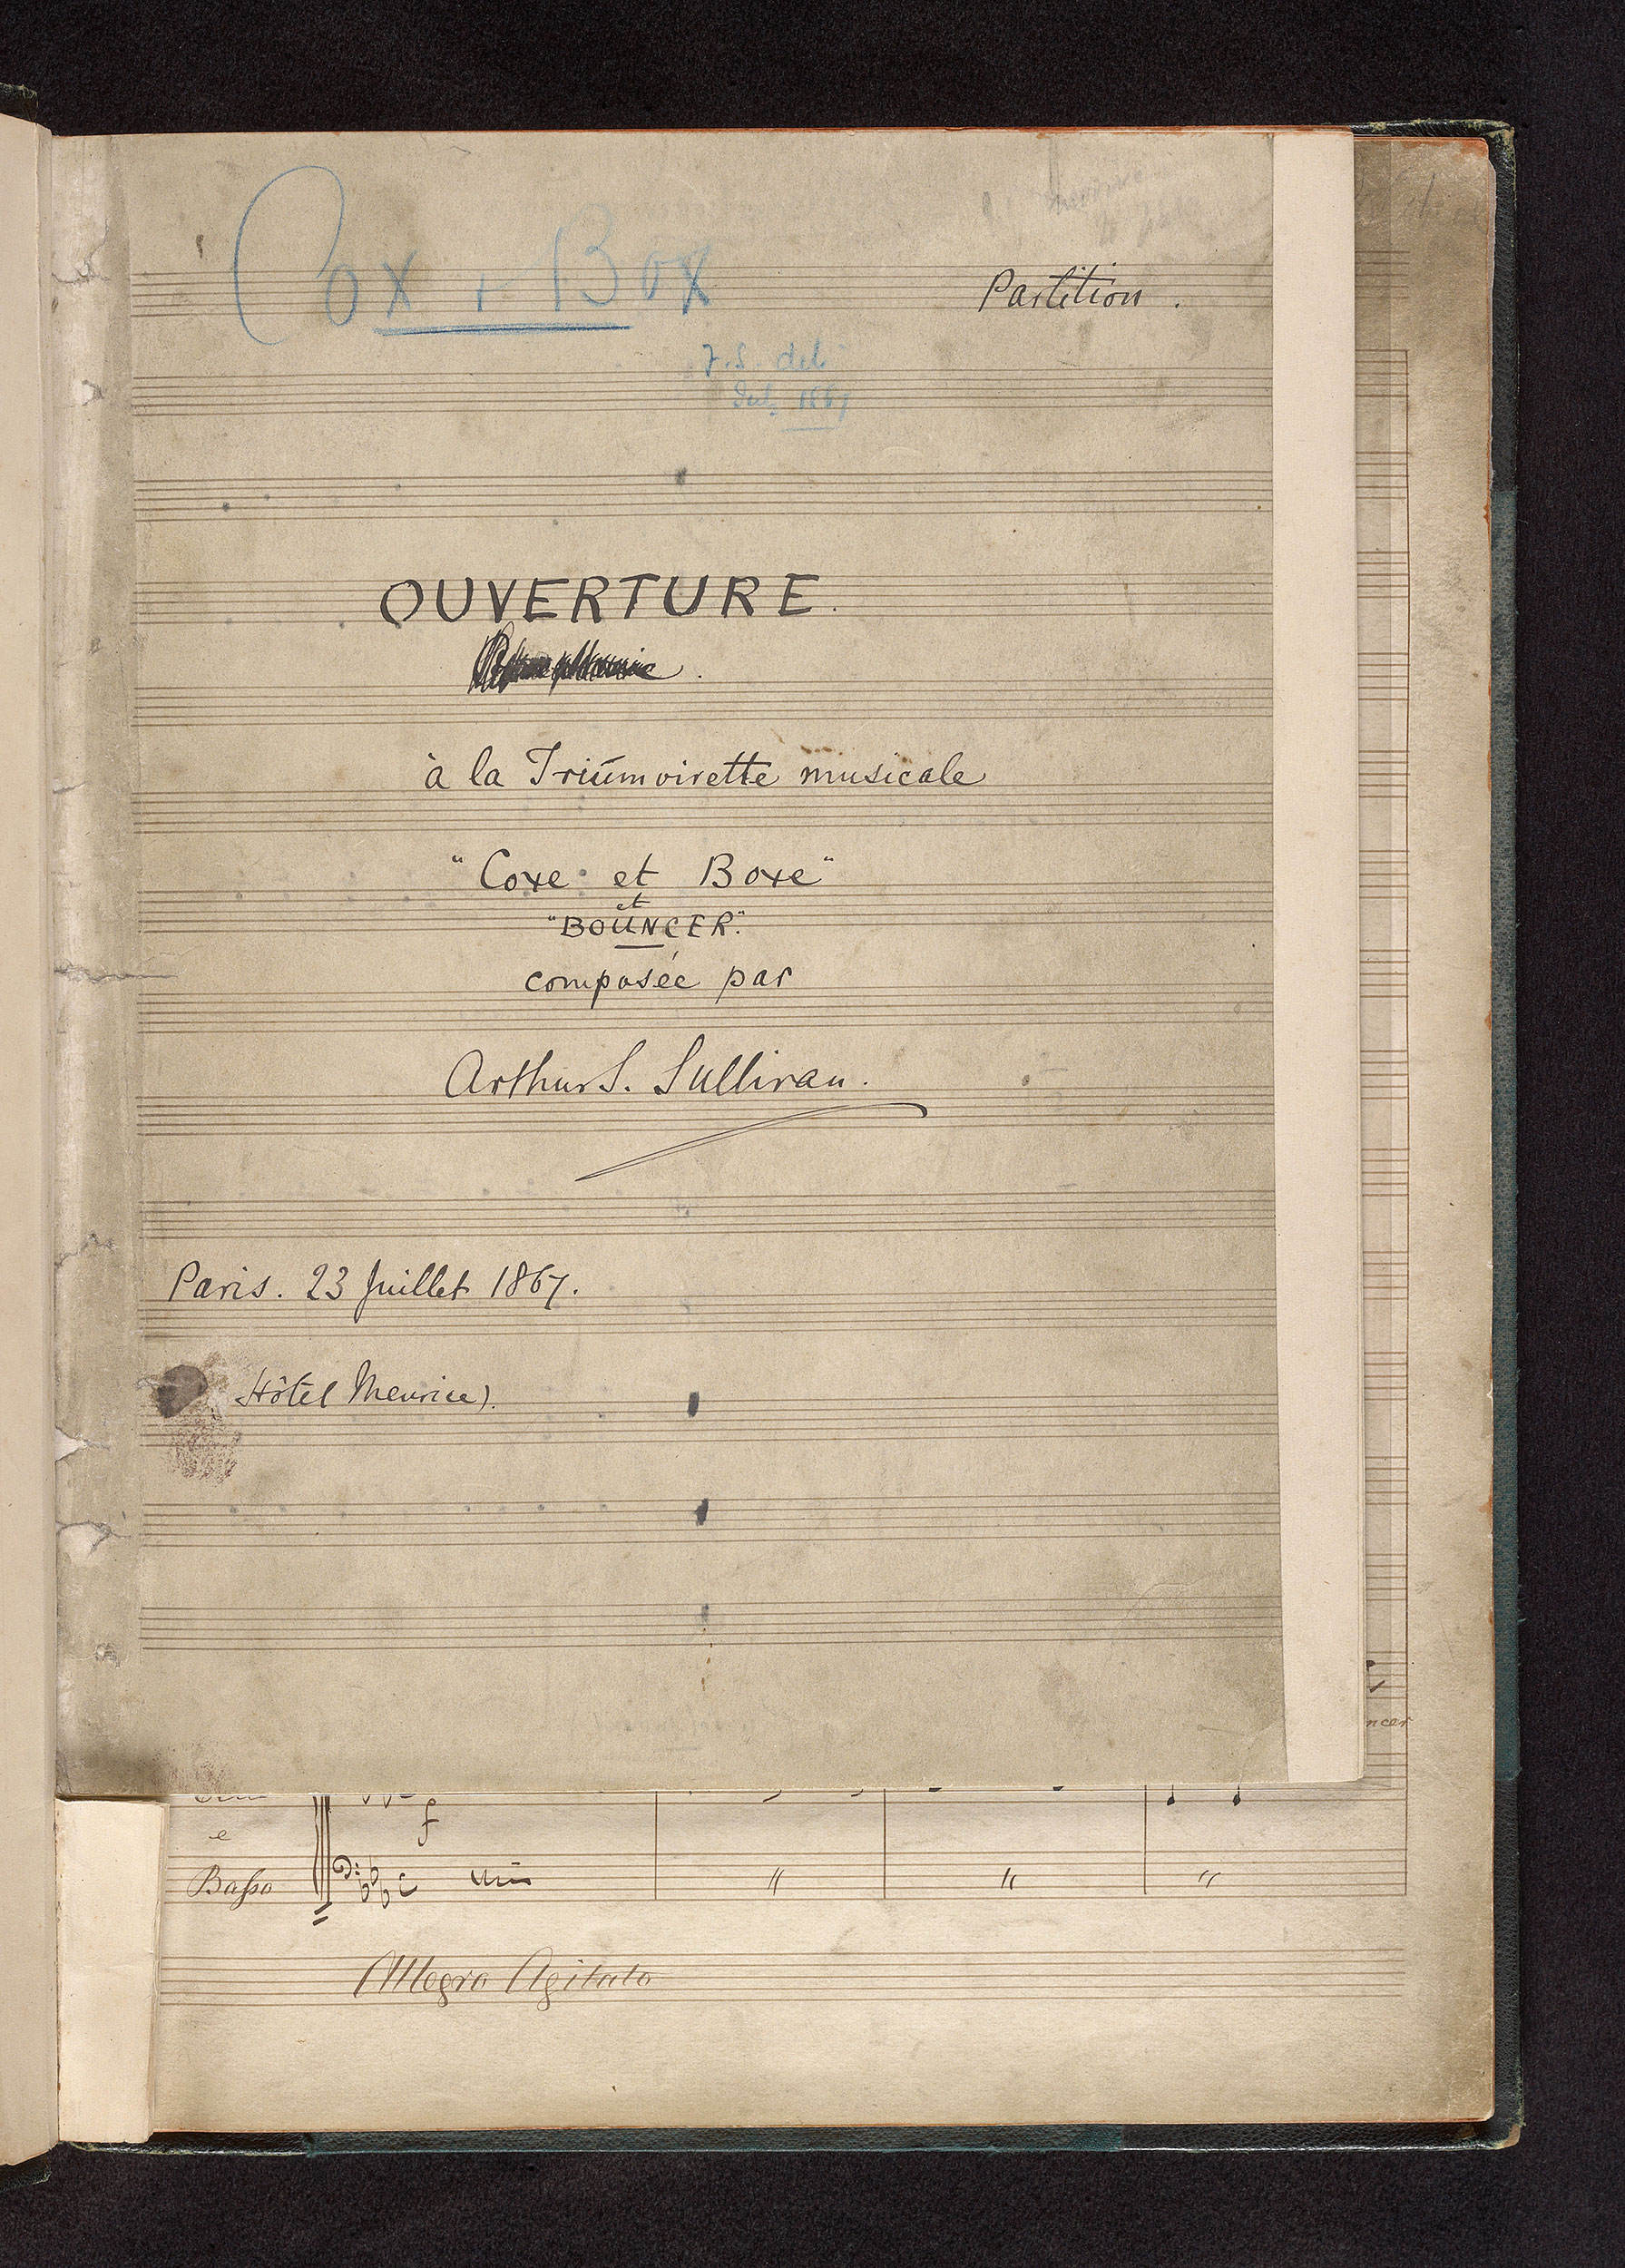 Cox + Box
Partition.
July 1867
OUVERTURE.
à la Triumvirette musicale
"Coxe et Boxe"
et
"BOUNCER".
composée par
Arthur S. Sullivan.
Paris. 23 Juillet 1867.
Hôtel Meurice).
ncer
e
f
Basso
Allegro Agitato